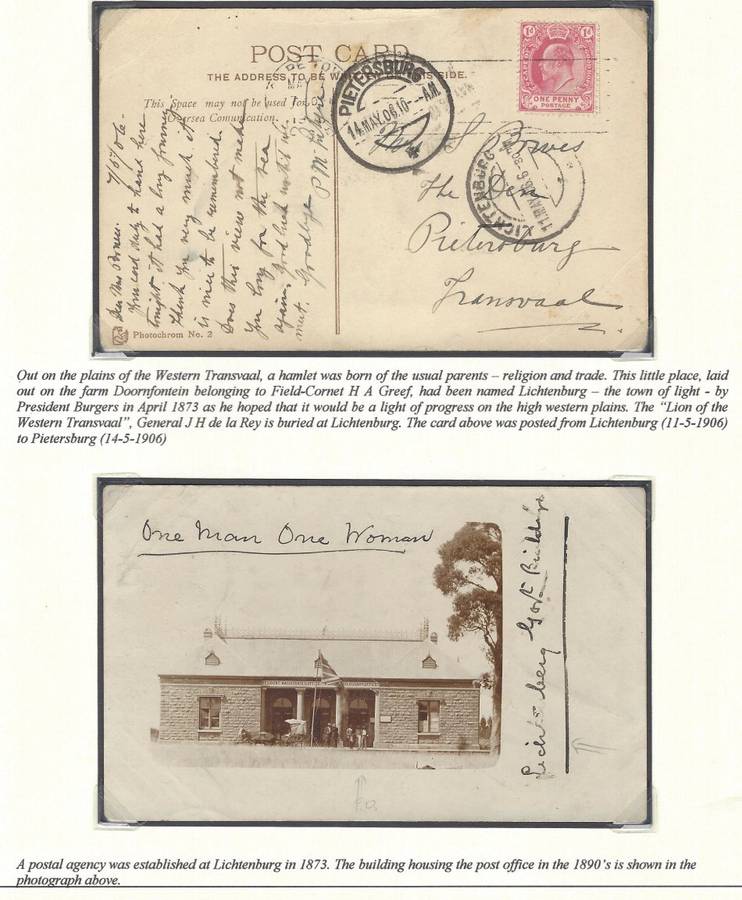 POST CARD
THE ADDRESS TO BE WRITTEN ON THIS SIDE.
This Space may not be used for
Oversea Comunication.
PIETERSBURG
14.MAY.06.10--AM.
CAPE OF
1d 1d
ONE PENNY
POSTAGE
LICHTENBURG
11 MAY
S Bowes
The Den
Pietersburg
Transvaal
Dear Mrs Bowes.
Your card duly to hand here
tonight it had a long journey.
Thank you very much it
is nice to be remembered.
Does this view not make
you long for the sea
again. Good luck until we
meet. Goodbye
Photochrom No. 2
Out on the plains of the Western Transvaal, a hamlet was born of the usual parents – religion and trade. This little place, laid
out on the farm Doornfontein belonging to Field-Cornet H A Greef, had been named Lichtenburg – the town of light - by
President Burgers in April 1873 as he hoped that it would be a light of progress on the high western plains. The “Lion of the
Western Transvaal”, General J H de la Rey is buried at Lichtenburg. The card above was posted from Lichtenburg (11-5-1906)
to Pietersburg (14-5-1906)
One Man One Woman
Govt Buildings
A postal agency was established at Lichtenburg in 1873. The building housing the post office in the 1890’s is shown in the
photograph above.